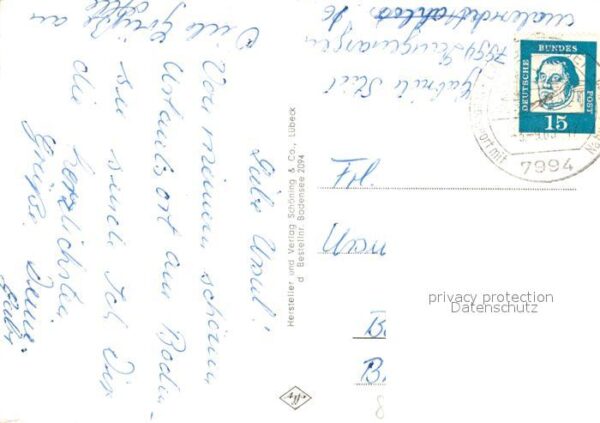 Liebe Ursul!
Von meinem schönen
Urlaubsort am Boden-
see sende ich Dir
die herzlichsten
Grüße Deine
Gabi
Viele Grüße an
alle
Gabriele
7994 Langenargen
Hersteller und Verlag Schöning & Co., Lübeck
d Bestellnr. Bodensee 2094
DEUTSCHE
BUNDES
POST
15
7994
Frl.
B.
privacy protection
Datenschutz